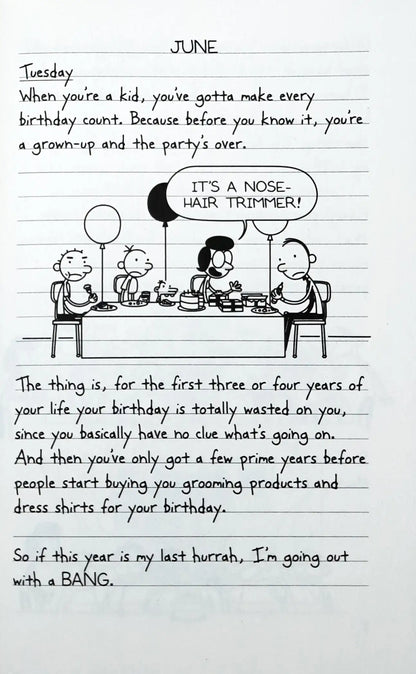 JUNE
Tuesday
When you're a kid, you've gotta make every
birthday count. Because before you know it, you're
a grown-up and the party's over.
IT'S A NOSE-
HAIR TRIMMER!
The thing is, for the first three or four years of
your life your birthday is totally wasted on you,
since you basically have no clue what's going on.
And then you've only got a few prime years before
people start buying you grooming products and
dress shirts for your birthday.
So if this year is my last hurrah, I'm going out
with a BANG.